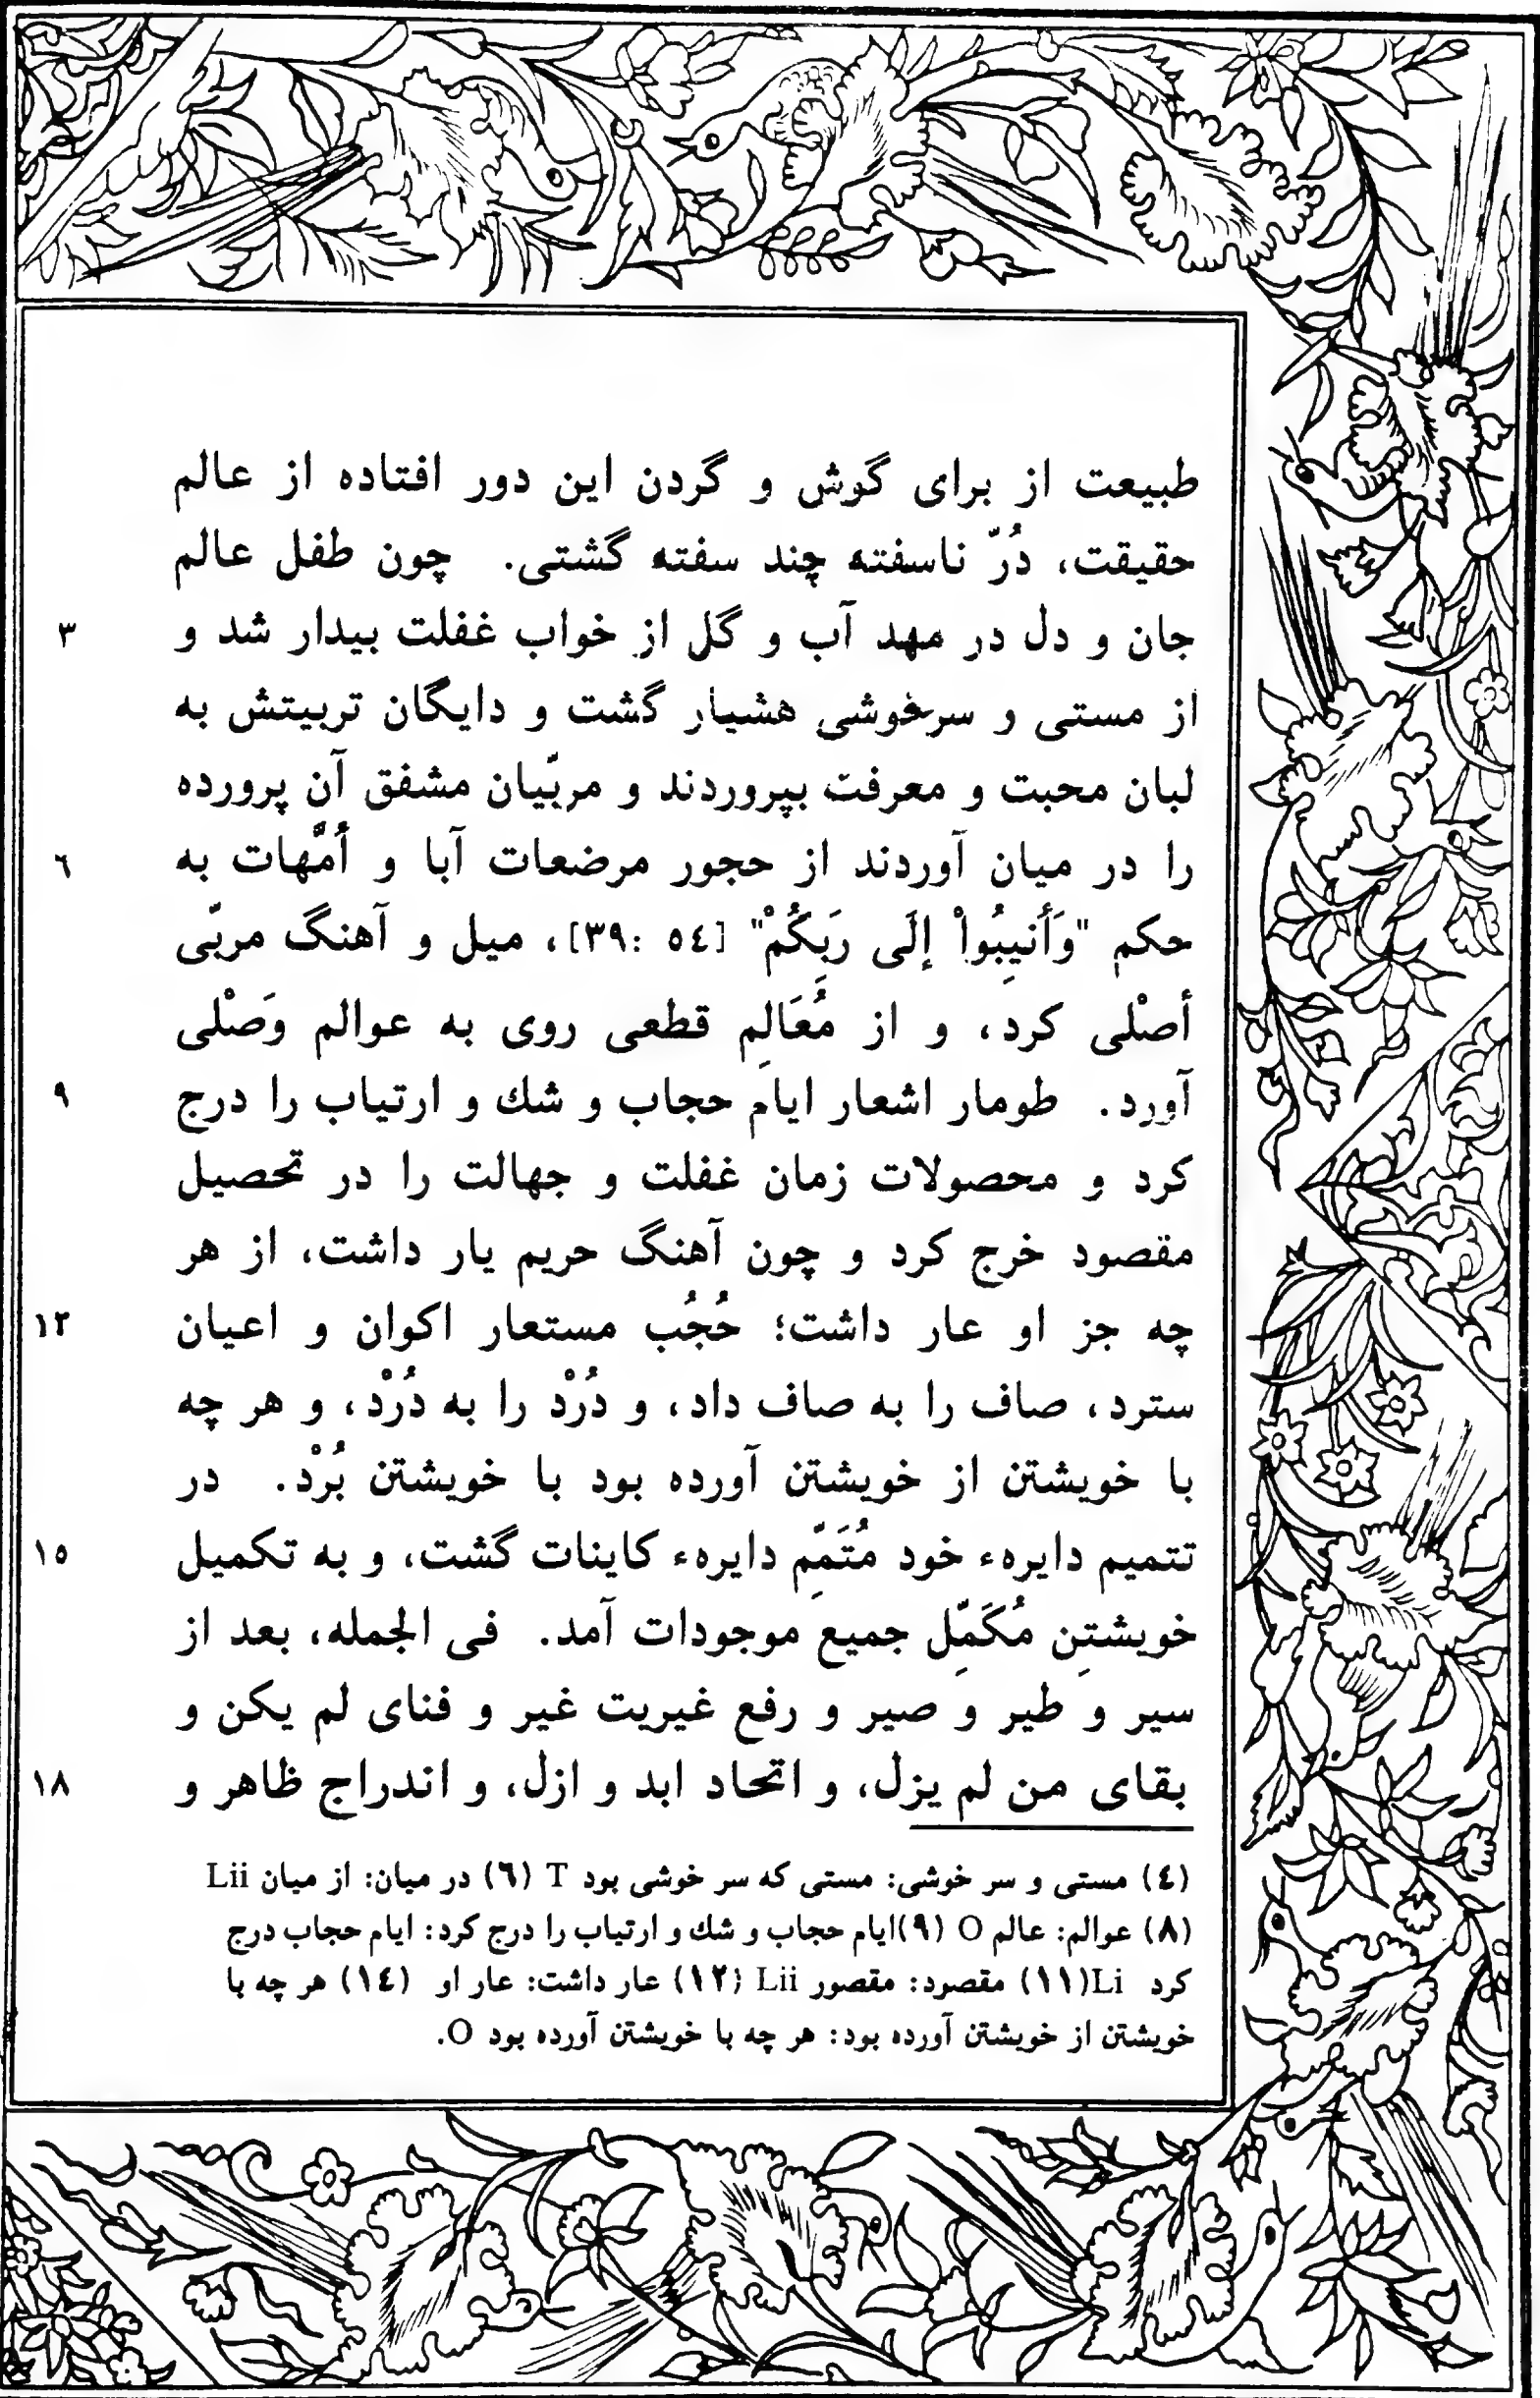 طبیعت از برای گوش و گردن این دور افتاده از عالم
حقیقت، دُرّ ناسفته چند سفته گشتی. چون طفل عالم
جان و دل در مهد آب و گل از خواب غفلت بیدار شد و
۳
از مستی و سرخوشی هشیار گشت و دایگان تربیتش به
لبان محبت و معرفت بپروردند و مربّیان مشفق آن پرورده
را در میان آوردند از حجور مرضعات آبا و أمَّهات به
٦
حکم "وَأَنیِبُواْ إلَی رَبِکُمْ" [٥٤ :۳۹]، میل و آهنگ مربّی
أصْلی کرد، و از مُعَالِم قطعی روی به عوالم وَصْلی
آورد. طومار اشعار ایام حجاب و شك و ارتیاب را درج
۹
کرد و محصولات زمان غفلت و جهالت را در تحصیل
مقصود خرج کرد و چون آهنگ حریم یار داشت، از هر
چه جز او عار داشت؛ حُجُب مستعار اکوان و اعیان
۱۲
سترد، صاف را به صاف داد، و دُرْد را به دُرْد، و هر چه
با خویشتن از خویشتن آورده بود با خویشتن بُرْد. در
تتمیم دایرهء خود مُتَمِّم دایرهء کاینات گشت، و به تکمیل
۱٥
خویشتِن مُکَمِّل جمیع موجودات آمد. فی الجمله، بعد از
سیر و طیر و صیر و رفع غیریت غیر و فنای لم یکن و
بقای من لم یزل، و اتحاد ابد و ازل، و اندراج ظاهر و
۱۸
(٤) مستی و سر خوشی: مستی که سر خوشی بود T (٦) در میان: از میان Lii
(۸) عوالم: عالم O (۹)ایام حجاب و شك و ارتیاب را درج کرد: ایام حجاب درج
کرد Li(۱۱) مقصود: مقصور Lii (۱۲) عار داشت: عار او (۱٤) هر چه با
خویشتن از خویشتن آورده بود: هر چه با خویشتن آورده بود O.